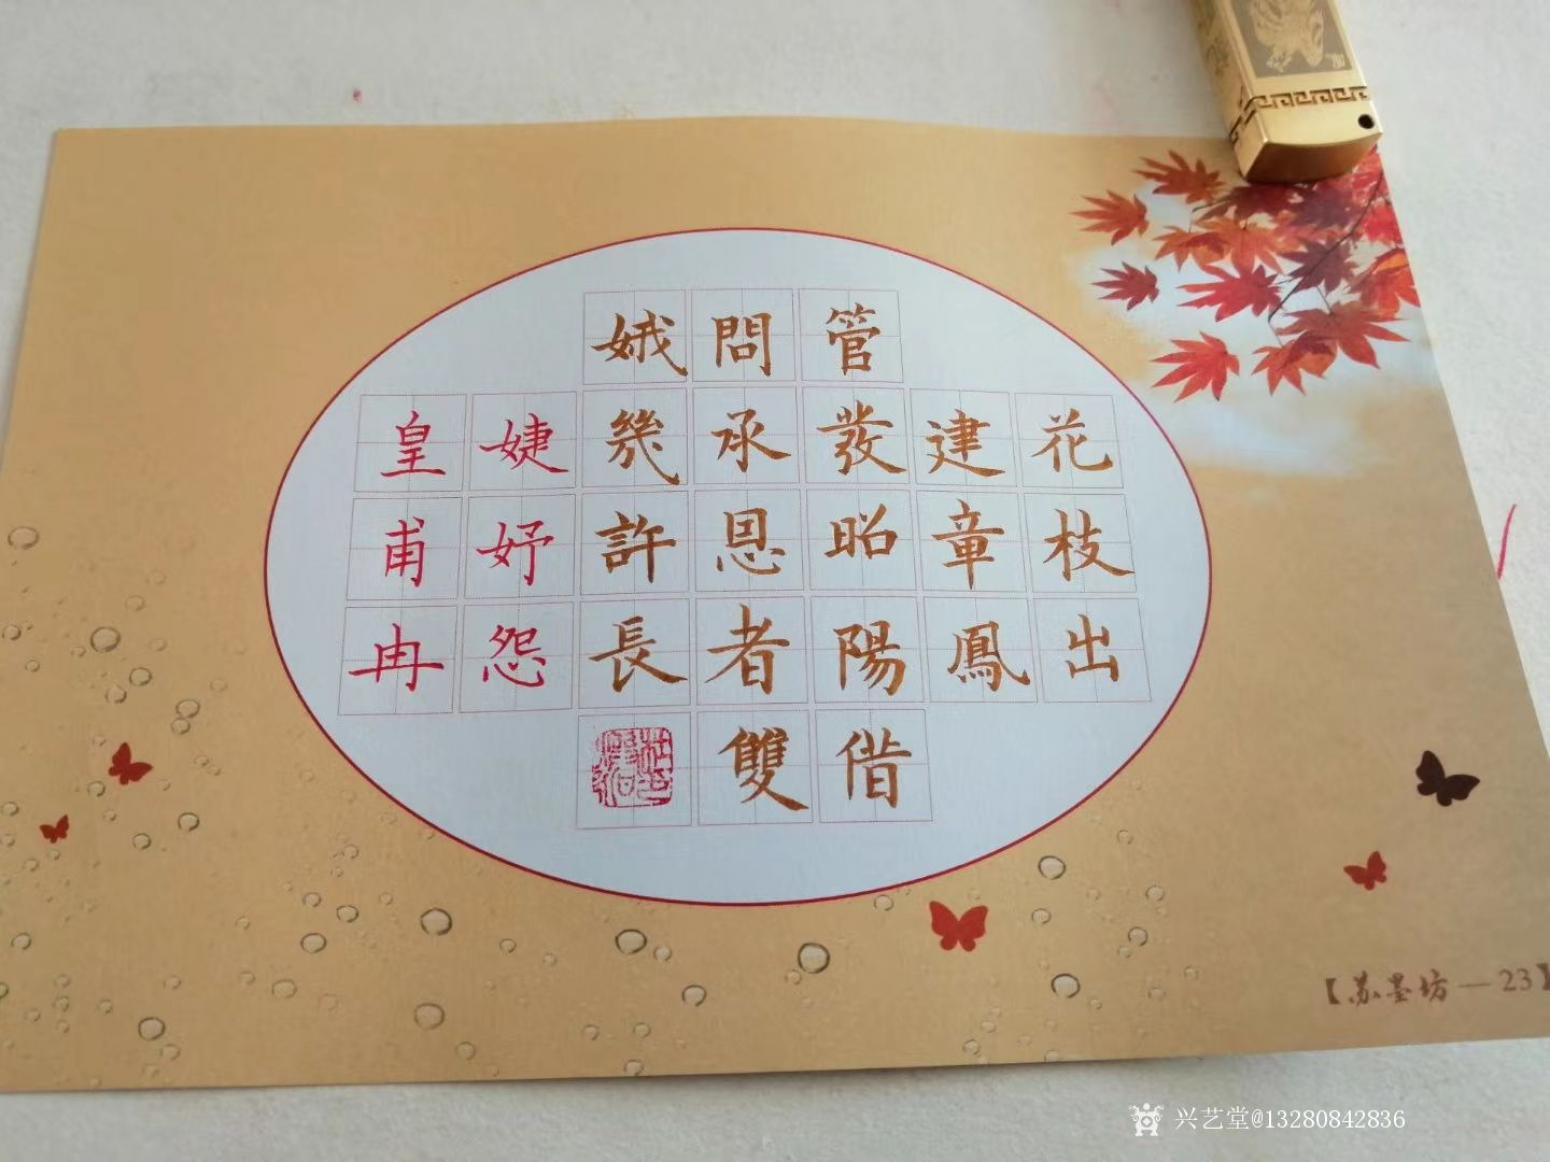 花枝出
建章鳳
管發昭陽借
問承恩者雙
娥幾許長
婕妤怨
皇甫冉
【苏墨坊—23】
兴艺堂@13280842836